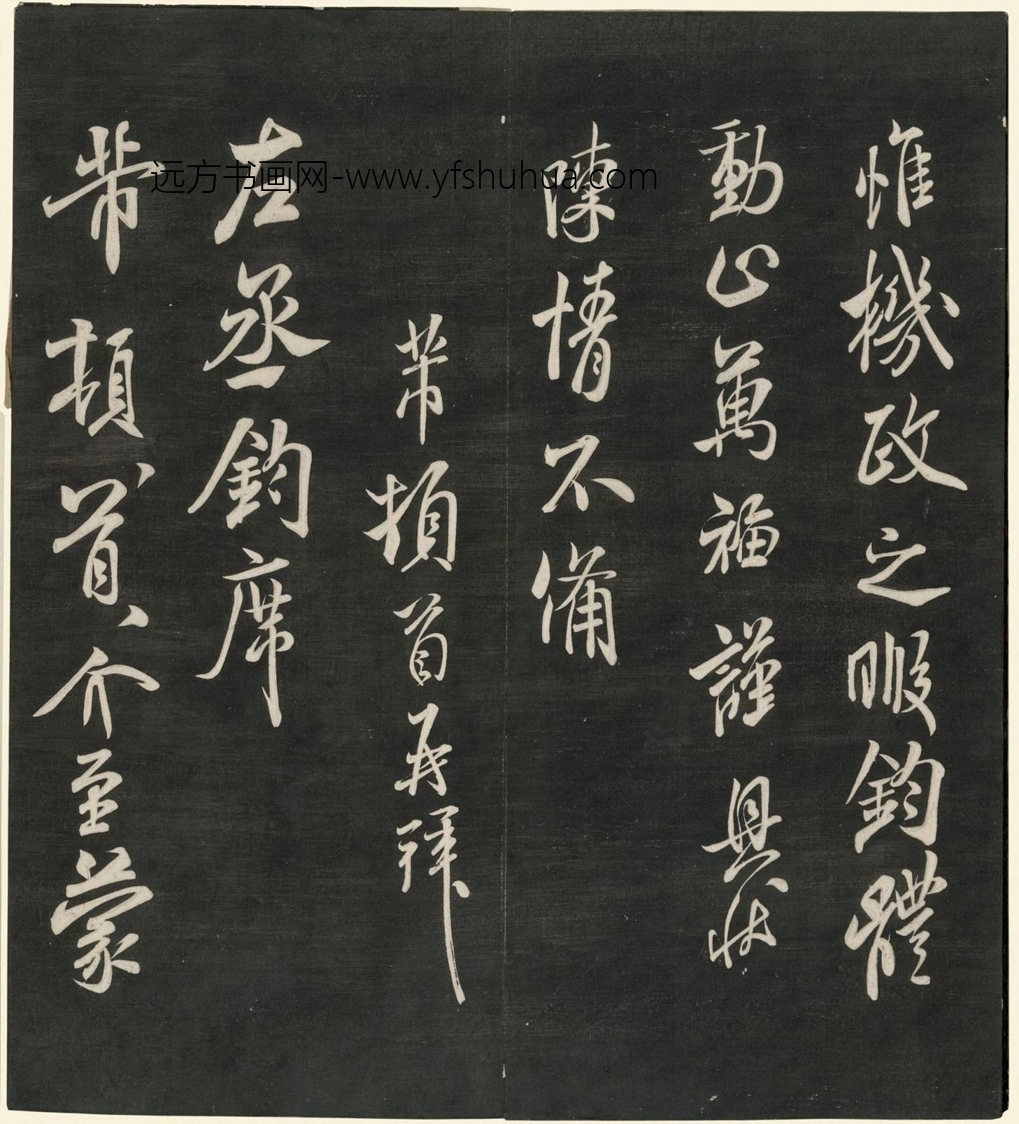 惟機政之暇鈞體
動止萬福謹具狀
陳情不備
芾頓首再拜
左丞鈞席
芾頓首首介至蒙
远方书画网-www.yfshuhua.com